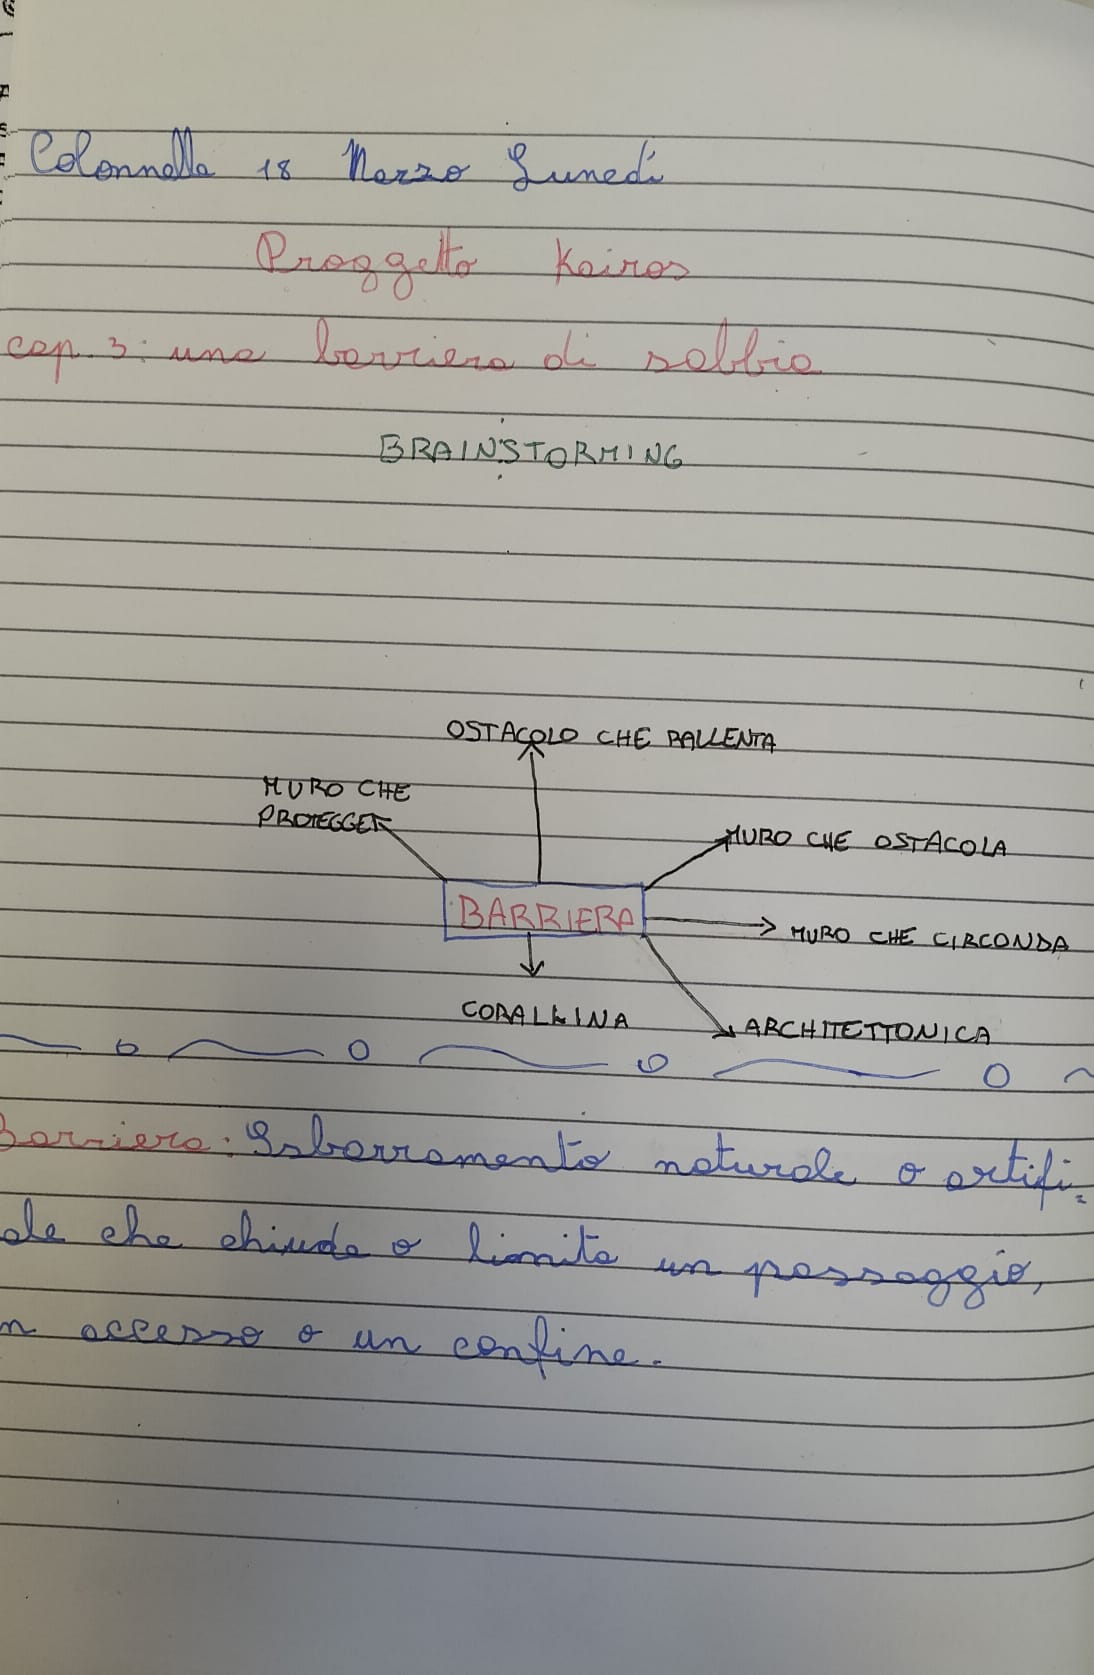 Colonnella 18 Marzo Lunedí
Proggetto Kairos
cap. 3: una barriera di sabbia
BRAINSTORMING
OSTACOLO CHE RALLENTA
MURO CHE
PROTEGGE
MURO CHE OSTACOLA
BARRIERA
MURO CHE CIRCONDA
CORALLINA
ARCHITETTONICA
Barriera: Sbarramento naturale o artifi=
ale che chiude o limita un passaggio,
n accesso o un confine.